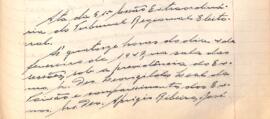 Ata da 51ª Sessão Extraordiná-
ria do Tribunal Regional Eleito-
ral.
Às quatorze horas do dia 4 de
fevereiro de 1947, na sala das
sessões, sob a presidência do Ex
mo. Sr. Des. Leal da
e comparecimento dos Ex
mos. Srs. Des. Aprigio Ribeiro, José